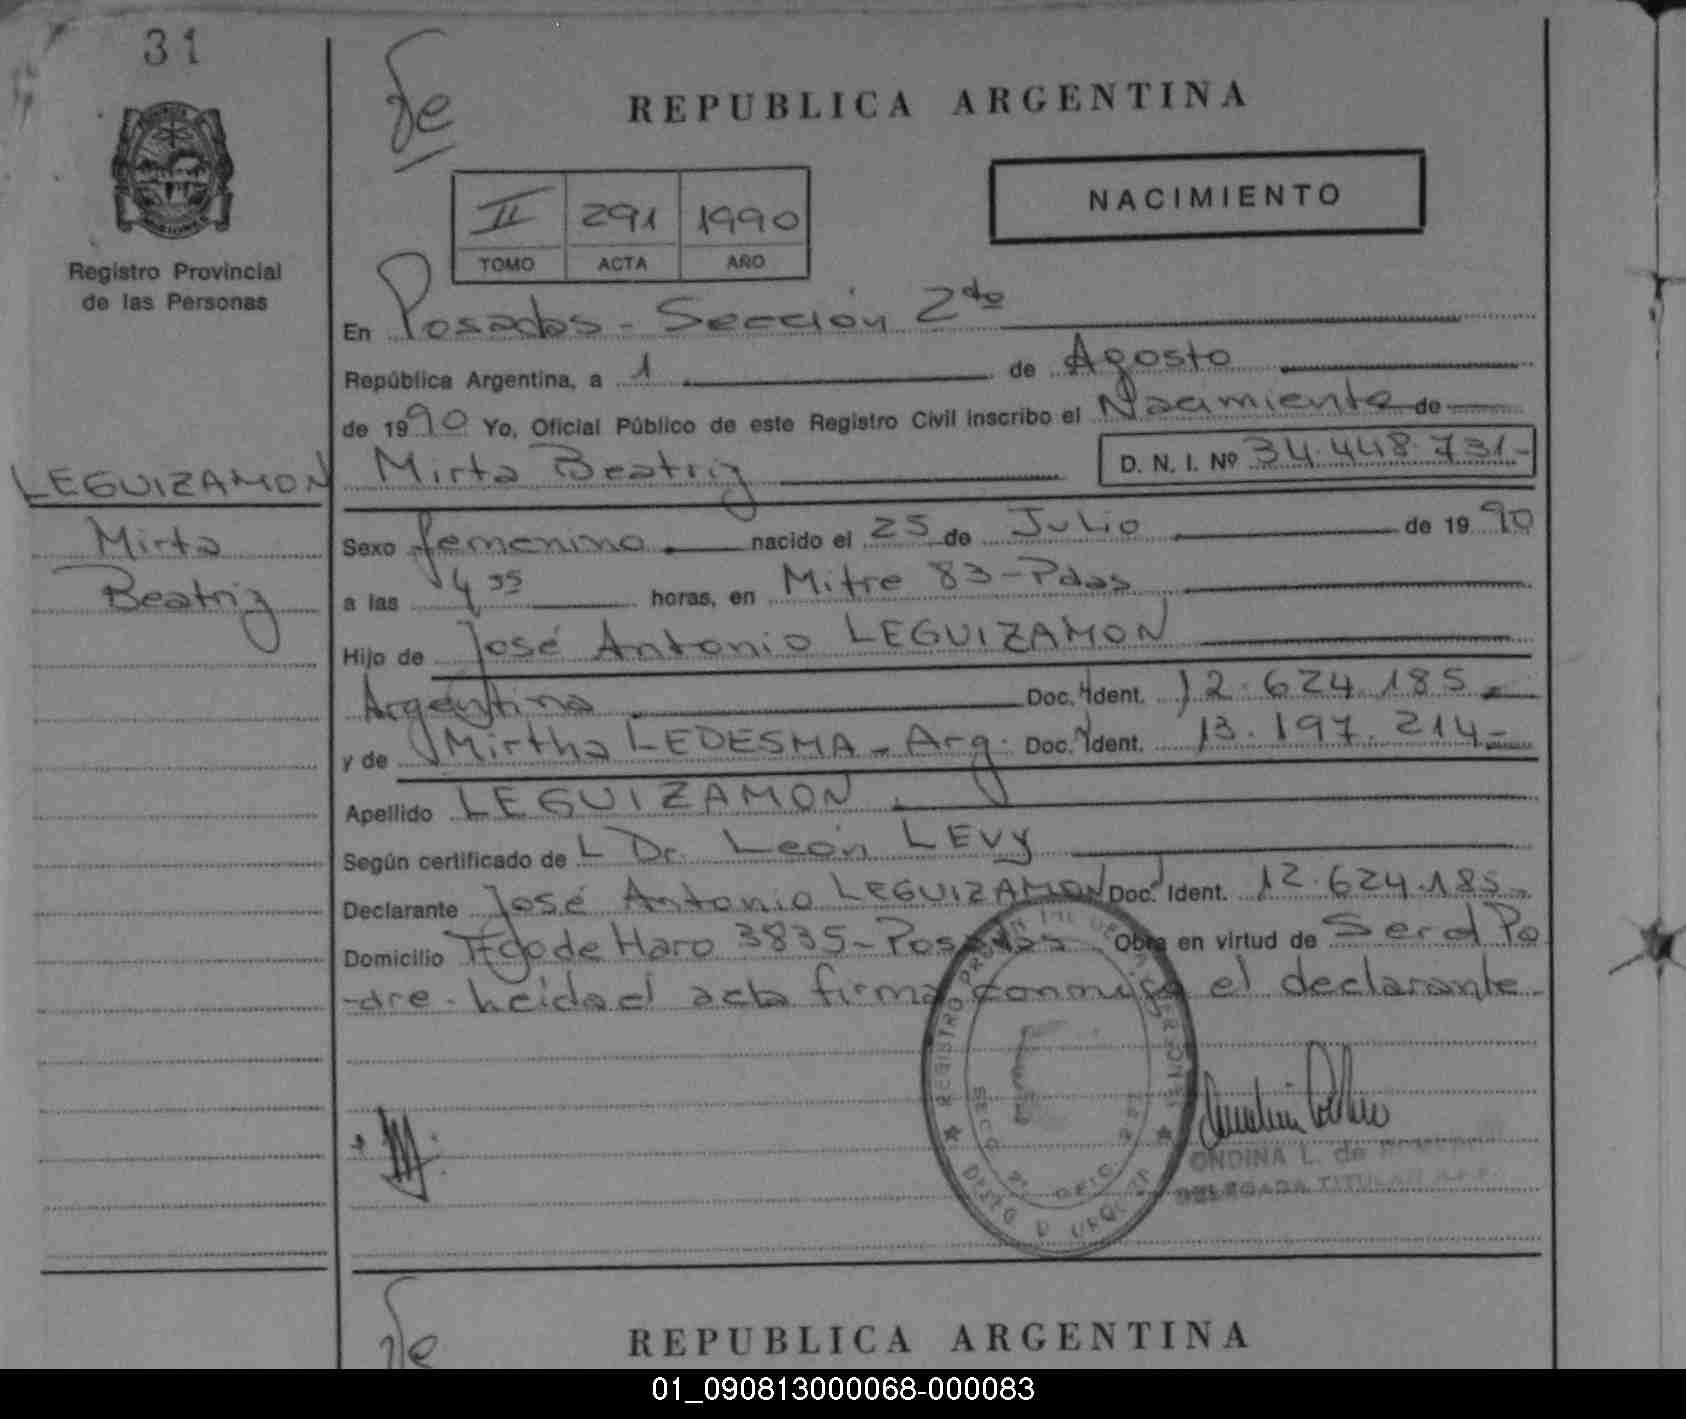 31
Registro Provincial
de las Personas
LEGUIZAMON
Mirta
Beatriz
REPUBLICA ARGENTINA
NACIMIENTO
II 291 1990
TOMO ACTA AÑO
En Posadas - Sección 2da
República Argentina, a 1 de Agosto
de 1990 Yo, Oficial Público de este Registro Civil inscribo el Nacimiento de
Mirta Beatriz D. N. I. Nº 34.448.731-
Sexo femenino nacido el 25 de Julio de 1990
a las 4 35 horas, en Mitre 83-Pdas
Hijo de José Antonio LEGUIZAMON
Argentino Doc. Ident. 12.624.185-
y de Mirtha LEDESMA - Arg. Doc. Ident. 13.197.214-
Apellido LEGUIZAMON
Según certificado de L Dr. León LEVY
Declarante José Antonio LEGUIZAMON Doc. Ident. 12.624.185-
Domicilio de Haro 3835-Posadas Obra en virtud de Ser el Pa
-dre. acta firma conmigo el declarante-
REGISTRO
ONDINA L. de
DELEGADA TITULAR
REPUBLICA ARGENTINA
01_090813000068-000083